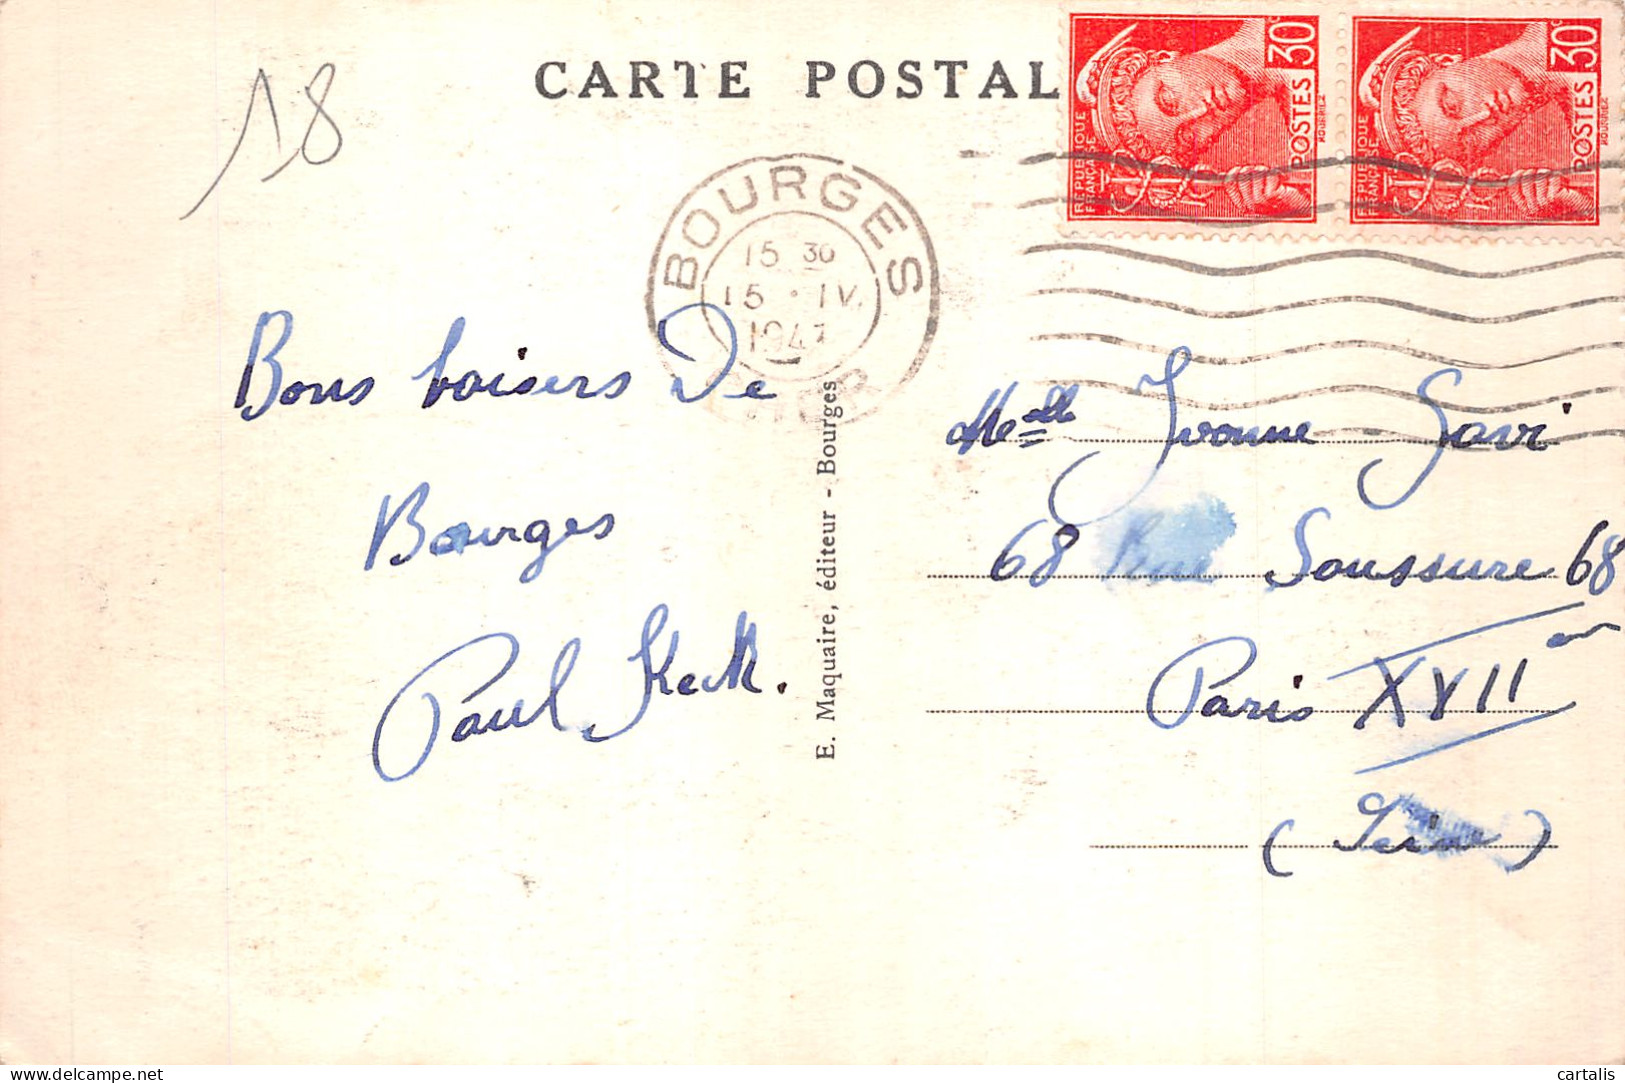 18
CARTE POSTAL
30c
POSTES
REPUBLIQUE
FRANCAISE
MOURIEZ
30c
POSTES
REPUBLIQUE
FRANCAISE
MOURIEZ
BOURGES
15 30
15 · IV.
CHER
Bons baisers De
Bourges
Paul Keck.
E. Maquaire, éditeur - Bourges
Melle Yvonne
68 Rue Saussure 68
Paris XVII
(Seine)
delcampe.net
cartalis